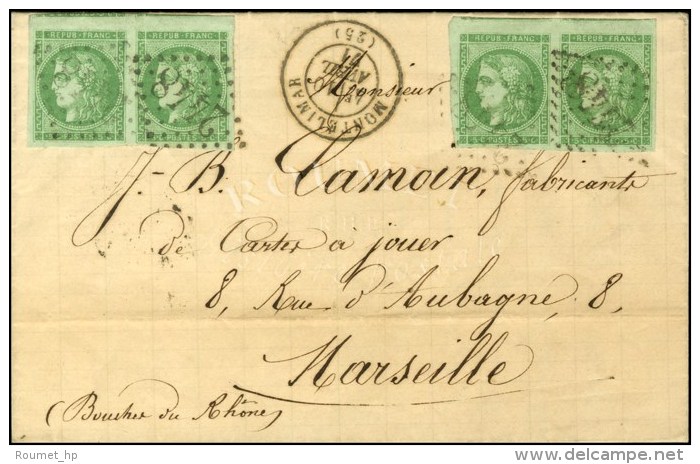 REPUB · FRANC · REPUB · FRANC · REPUB · FRANC · REPUB · FRANC ·
2448 2448
MONTELIMAR (25)
AVRIL 71
Monsieur
J.-B. Camoin, fabricants
de Cartes à jouer
8, Rue d'Aubagne, 8,
Marseille
(Bouches du Rhône)
Roumet_hp
delcampe.net